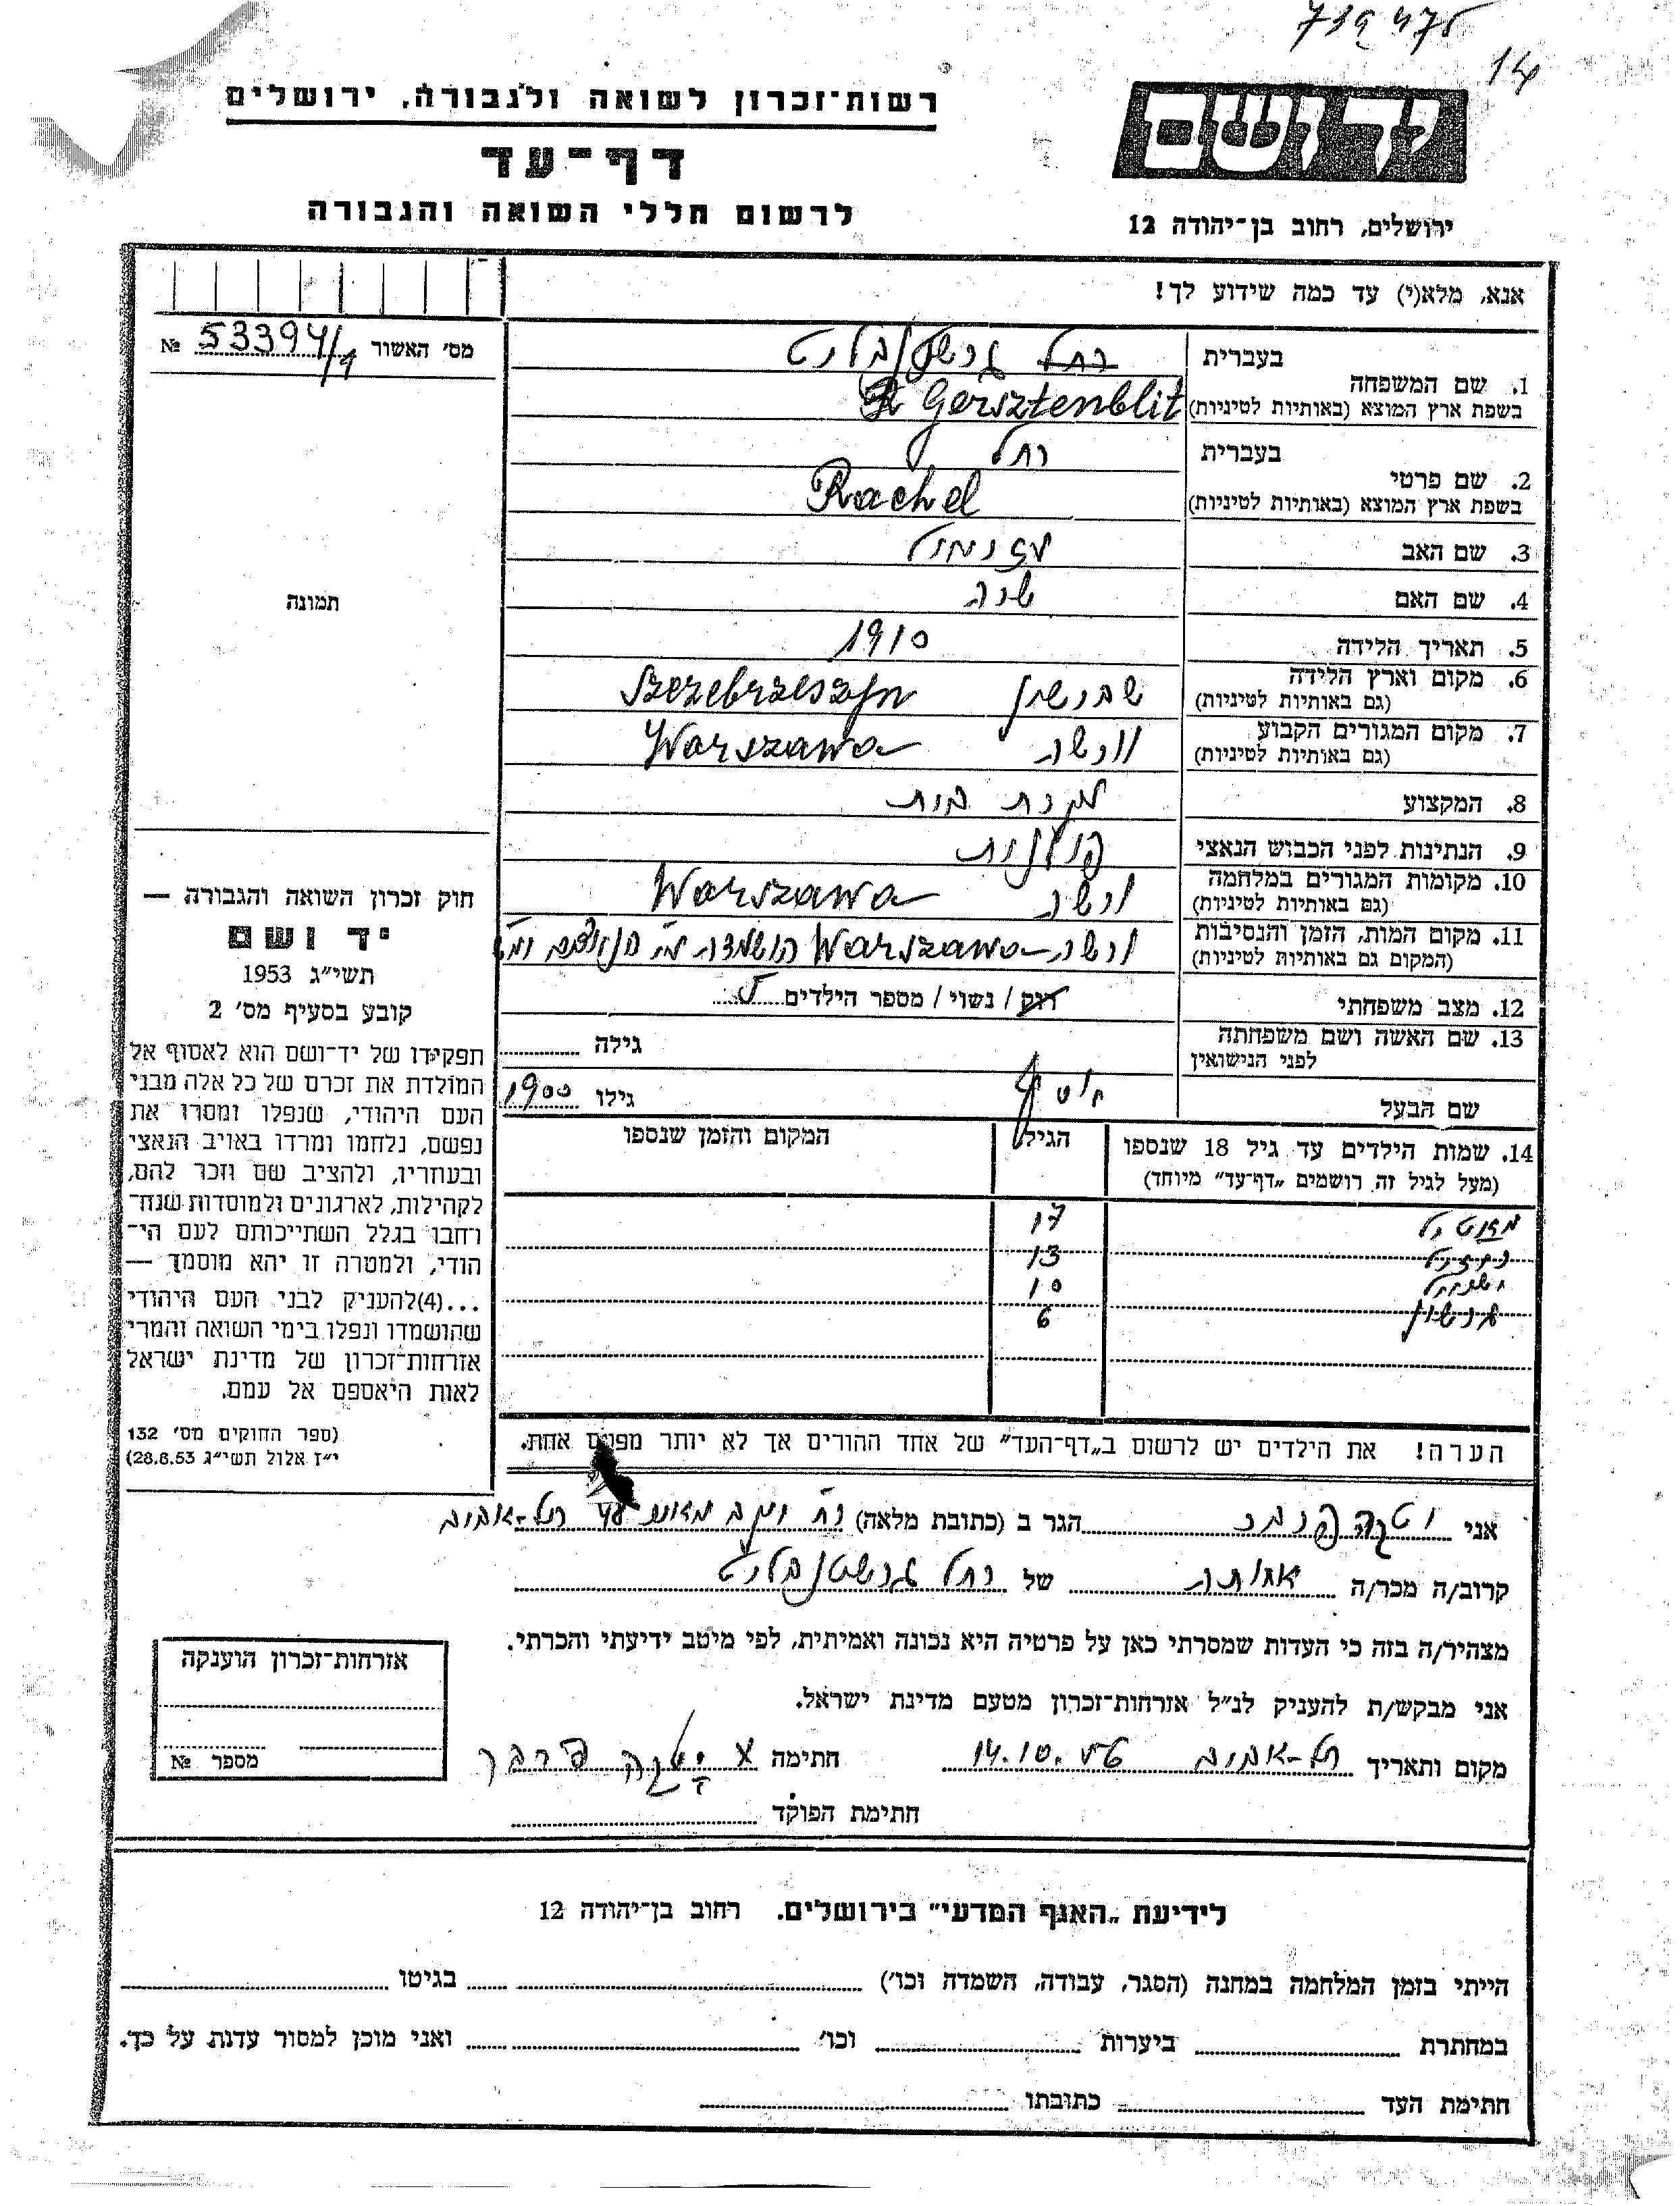 14
יד ושם
רשות־זכרון לשואה ולגבורה, ירושלים
דף־עד
לרשום חללי השואה והגבורה
ירושלים, רחוב בן־יהודה 12
אנא, מלא(י) עד כמה שידוע לך!
מס' האשור 53394/1 №
תמונה
1. שם המשפחה
בעברית גרשטנבליט
בשפת ארץ המוצא (באותיות לטיניות) Gersztenblit
2. שם פרטי
בעברית רחל
בשפת ארץ המוצא (באותיות לטיניות) Rachel
3. שם האב
4. שם האם
5. תאריך הלידה 1910
6. מקום וארץ הלידה
(גם באותיות לטיניות) שברשין Szezebrzeszyn
7. מקום המגורים הקבוע
(גם באותיות לטיניות) וורשה Warszawa
8. המקצוע עקרת בית
9. הנתינות לפני הכבוש הנאצי פולנית
10. מקומות המגורים במלחמה
(גם באותיות לטיניות) ורשה Warszawa
11. מקום המות, הזמן והנסיבות
(המקום גם באותיות לטיניות) ורשה Warszawa הושמדה
12. מצב משפחתי רוק / נשוי / מספר הילדים
13. שם האשה ושם משפחתה
לפני הנישואין גילה
שם הבעל גילו 1900
14. שמות הילדים עד גיל 18 שנספו הגיל המקום והזמן שנספו
(מעל לגיל זה רושמים „דף־עד" מיוחד)
17
13
10
גרשון 6
הערה! את הילדים יש לרשום ב„דף־העד" של אחד ההורים אך לא יותר מפעם אחת.
חוק זכרון השואה והגבורה —
יד ושם
תשי"ג 1953
קובע בסעיף מס' 2
תפקידו של יד־ושם הוא לאסוף אל
המולדת את זכרם של כל אלה מבני
העם היהודי, שנפלו ומסרו את
נפשם, נלחמו ומרדו באויב הנאצי
ובעוזריו, ולהציב שם וזכר להם,
לקהילות, לארגונים ולמוסדות שנח־
רחבו בגלל השתייכותם לעם הי־
הודי, ולמטרה זו יהא מוסמך —
...(4)להעניק לבני העם היהודי
שהושמדו ונפלו בימי השואה והמרי
אזרחות־זכרון של מדינת ישראל
לאות היאספם אל עמם.
(ספר החוקים מס' 132
י"ז אלול תשי"ג 28.8.53)
אני יטקה פרבר הגר ב (כתובת מלאה) תל-אביב
קרוב/ה מכר/ה אחותה של רחל גרשטנבליט
מצהיר/ה בזה כי העדות שמסרתי כאן על פרטיה היא נכונה ואמיתית, לפי מיטב ידיעתי והכרתי.
אני מבקש/ת להעניק לנ"ל אזרחות־זכרון מטעם מדינת ישראל.
מקום ותאריך תל-אביב 14.10. חתימה יטקה פרבר
חתימת הפוקד
אזרחות־זכרון הוענקה
מספר №
לידיעת „האגף המדעי" בירושלים. רחוב בן־יהודה 12
הייתי בזמן המלחמה במחנה (הסגר, עבודה, השמדה וכו') בגיטו
במחתרת ביערות וכו' ואני מוכן למסור עדות על כך.
חתימת העד כתובתו